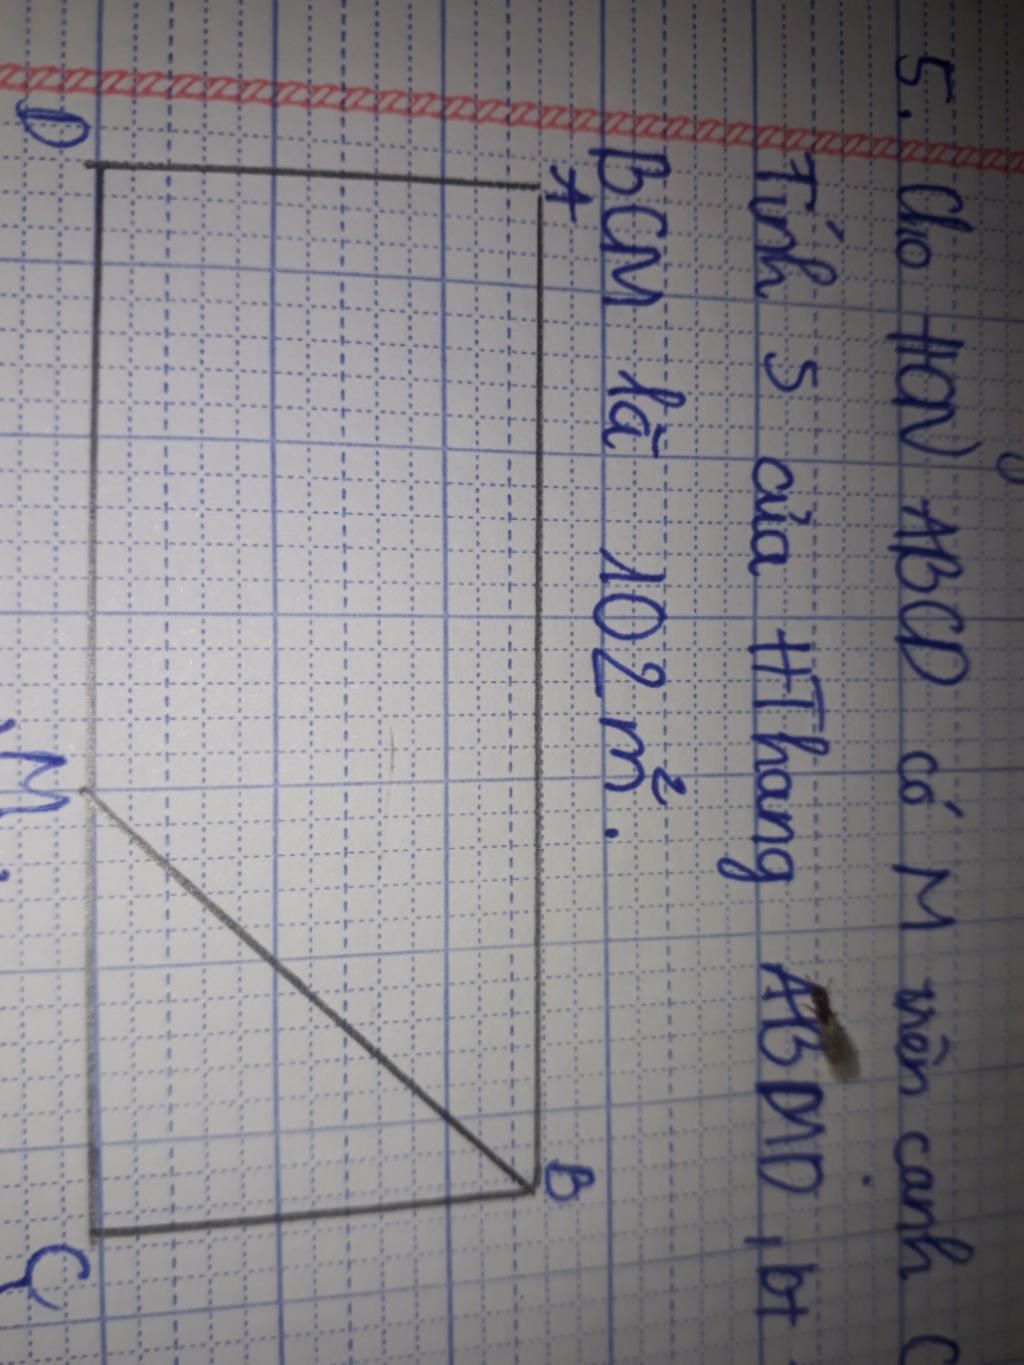 5. Cho HCN ABCD có M trên cạnh
Tính S của HThang ABMD, bt
BCM là 102 m².
A
B
D
M
C